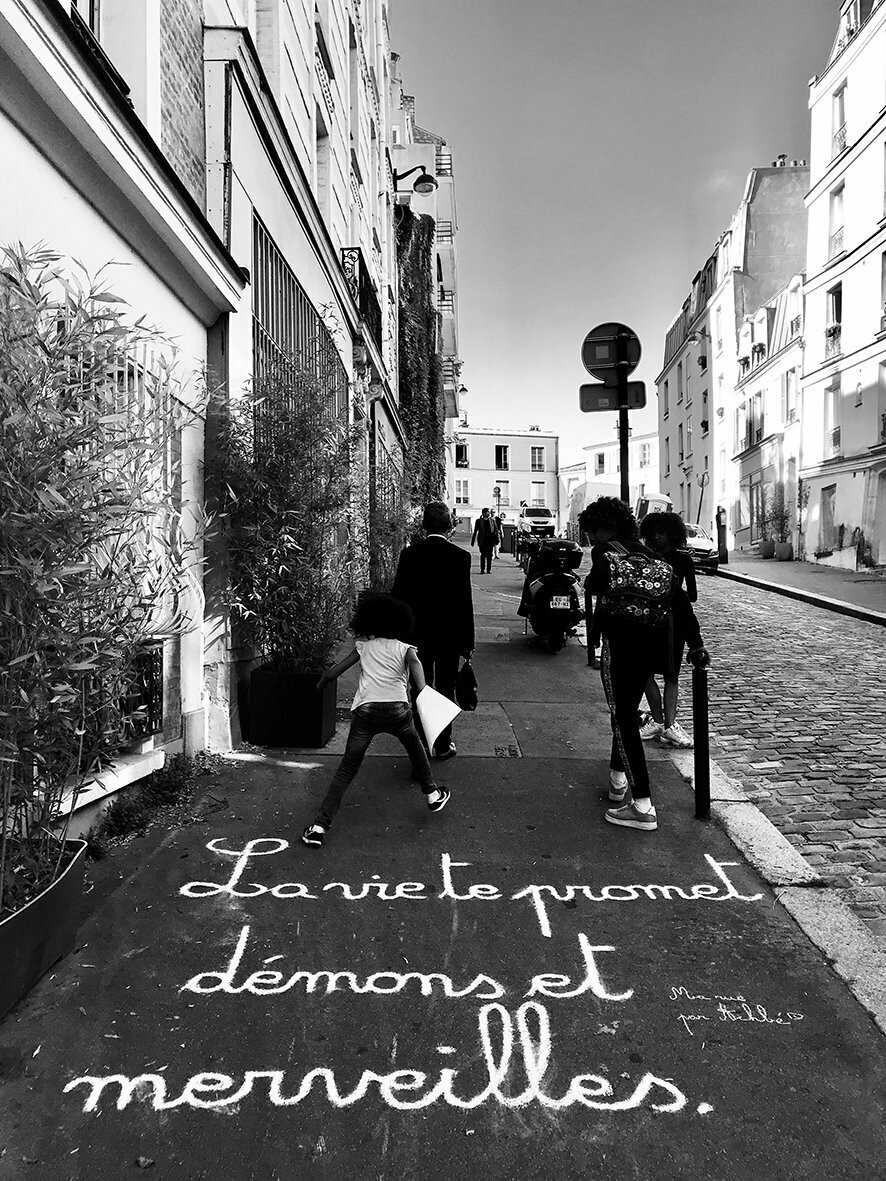 La vie te promet
démons et
merveilles.
Ma rue
par Achbé